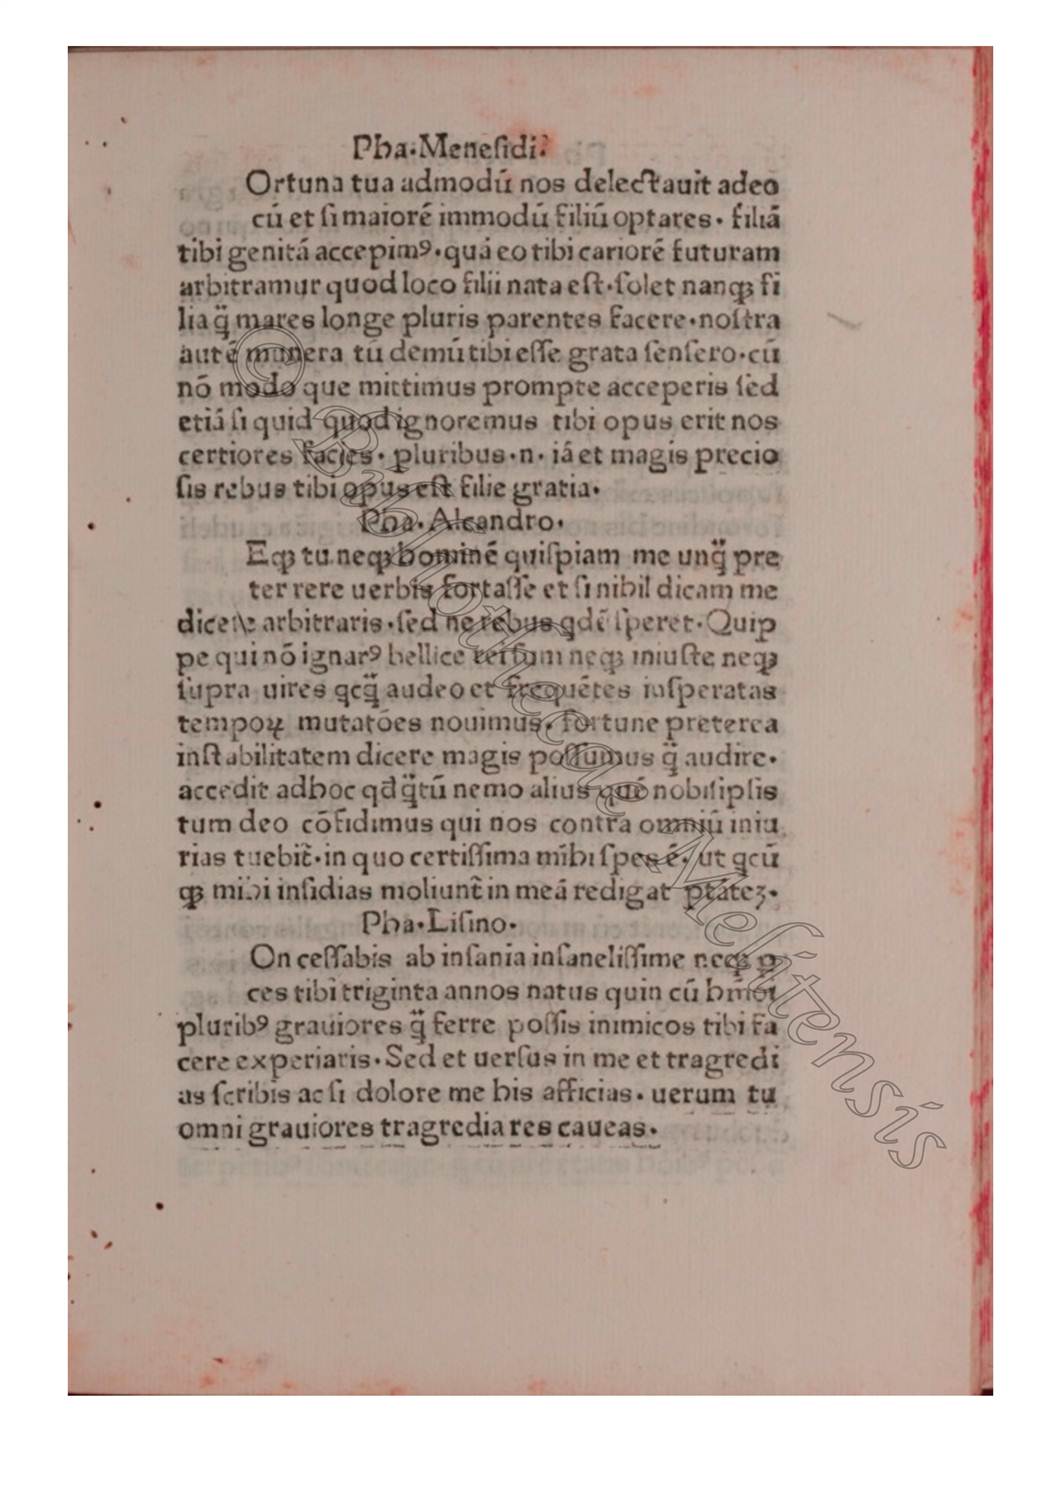 Pha·Menesidi·
Ortuna tua admodū nos delectauit adeo
cū et si maiorē immodū filiū optares· filiā
tibi genitā accepimꝰ·quā eo tibi cariorē futuram
arbitramur quod loco filii nata est·solet nanqꝫ fi
lia q̄ mares longe pluris parentes facere·nostra
autē munera tū demū tibi esse grata sensero·cū
nō modo que mittimus prompte acceperis sed
etiā si quid quod ignoremus tibi opus erit nos
certiores facies· pluribus·n· iā et magis precio
sis rebus tibi opus est filie gratia·
Pha· Alcandro·
Eqꝫ tu neqꝫ hominē quispiam me unq̄ pre
ter rere uerbis fortasse et si nihil dicam me
dicere arbitraris·sed ne rebus qdē speret·Quip
pe qui nō ignarꝰ bellice rerum neqꝫ iniuste neqꝫ
supra uires qcq̄ audeo et frequētes insperatas
tempoꝝ mutatōes nouimus· fortune preterea
instabilitatem dicere magis possumus q̄ audire·
accedit adhoc qd q̄tū nemo alius quē nobisipsis
tum deo cōfidimus qui nos contra omniū iniu
rias tuebit̄·in quo certissima mihi spes ē· ut qcū
qꝫ mihi insidias moliunt̄ in meā redigat ptāteꝫ·
Pha·Lisino·
On cessabis ab insania insanelissime neqꝫ p
ces tibi triginta annos natus quin cū hmōi
pluribꝰ grauiores q̄ ferre possis inimicos tibi fa
cere experiaris·Sed et uersus in me et tragredi
as scribis ac si dolore me his afficias· uerum tu
omni grauiores tragredia res caueas·
© Bibliothecae Melitensis